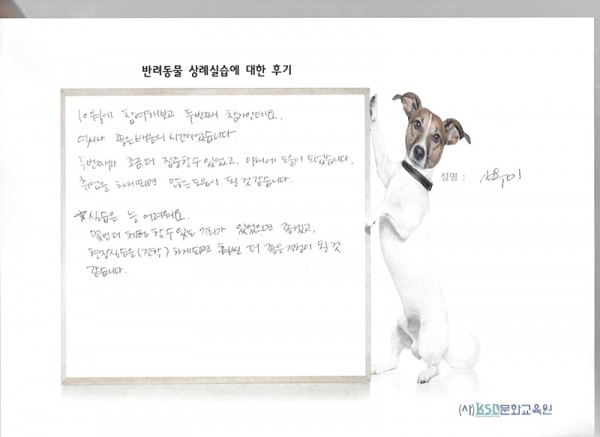 반려동물 상례실습에 대한 후기
10월에 참여해보고 두번째 참가인데요.
역시나 좋은 배움의 시간이었습니다
두번째라 조금 더 집중할 수 있었고, 이해에 도움이 되었습니다.
취업을 하게되면 많은 도움이 될 것 같습니다.
★실습은 늘 어려워요.
몇번 더 체험할 수 있는 기회가 있었으면 좋겠고,
현장실습을(견학) 하게되면 훨씬 더 좋은 경험이 될 것
같습니다.
성명 :
(사)KSD문화교육원